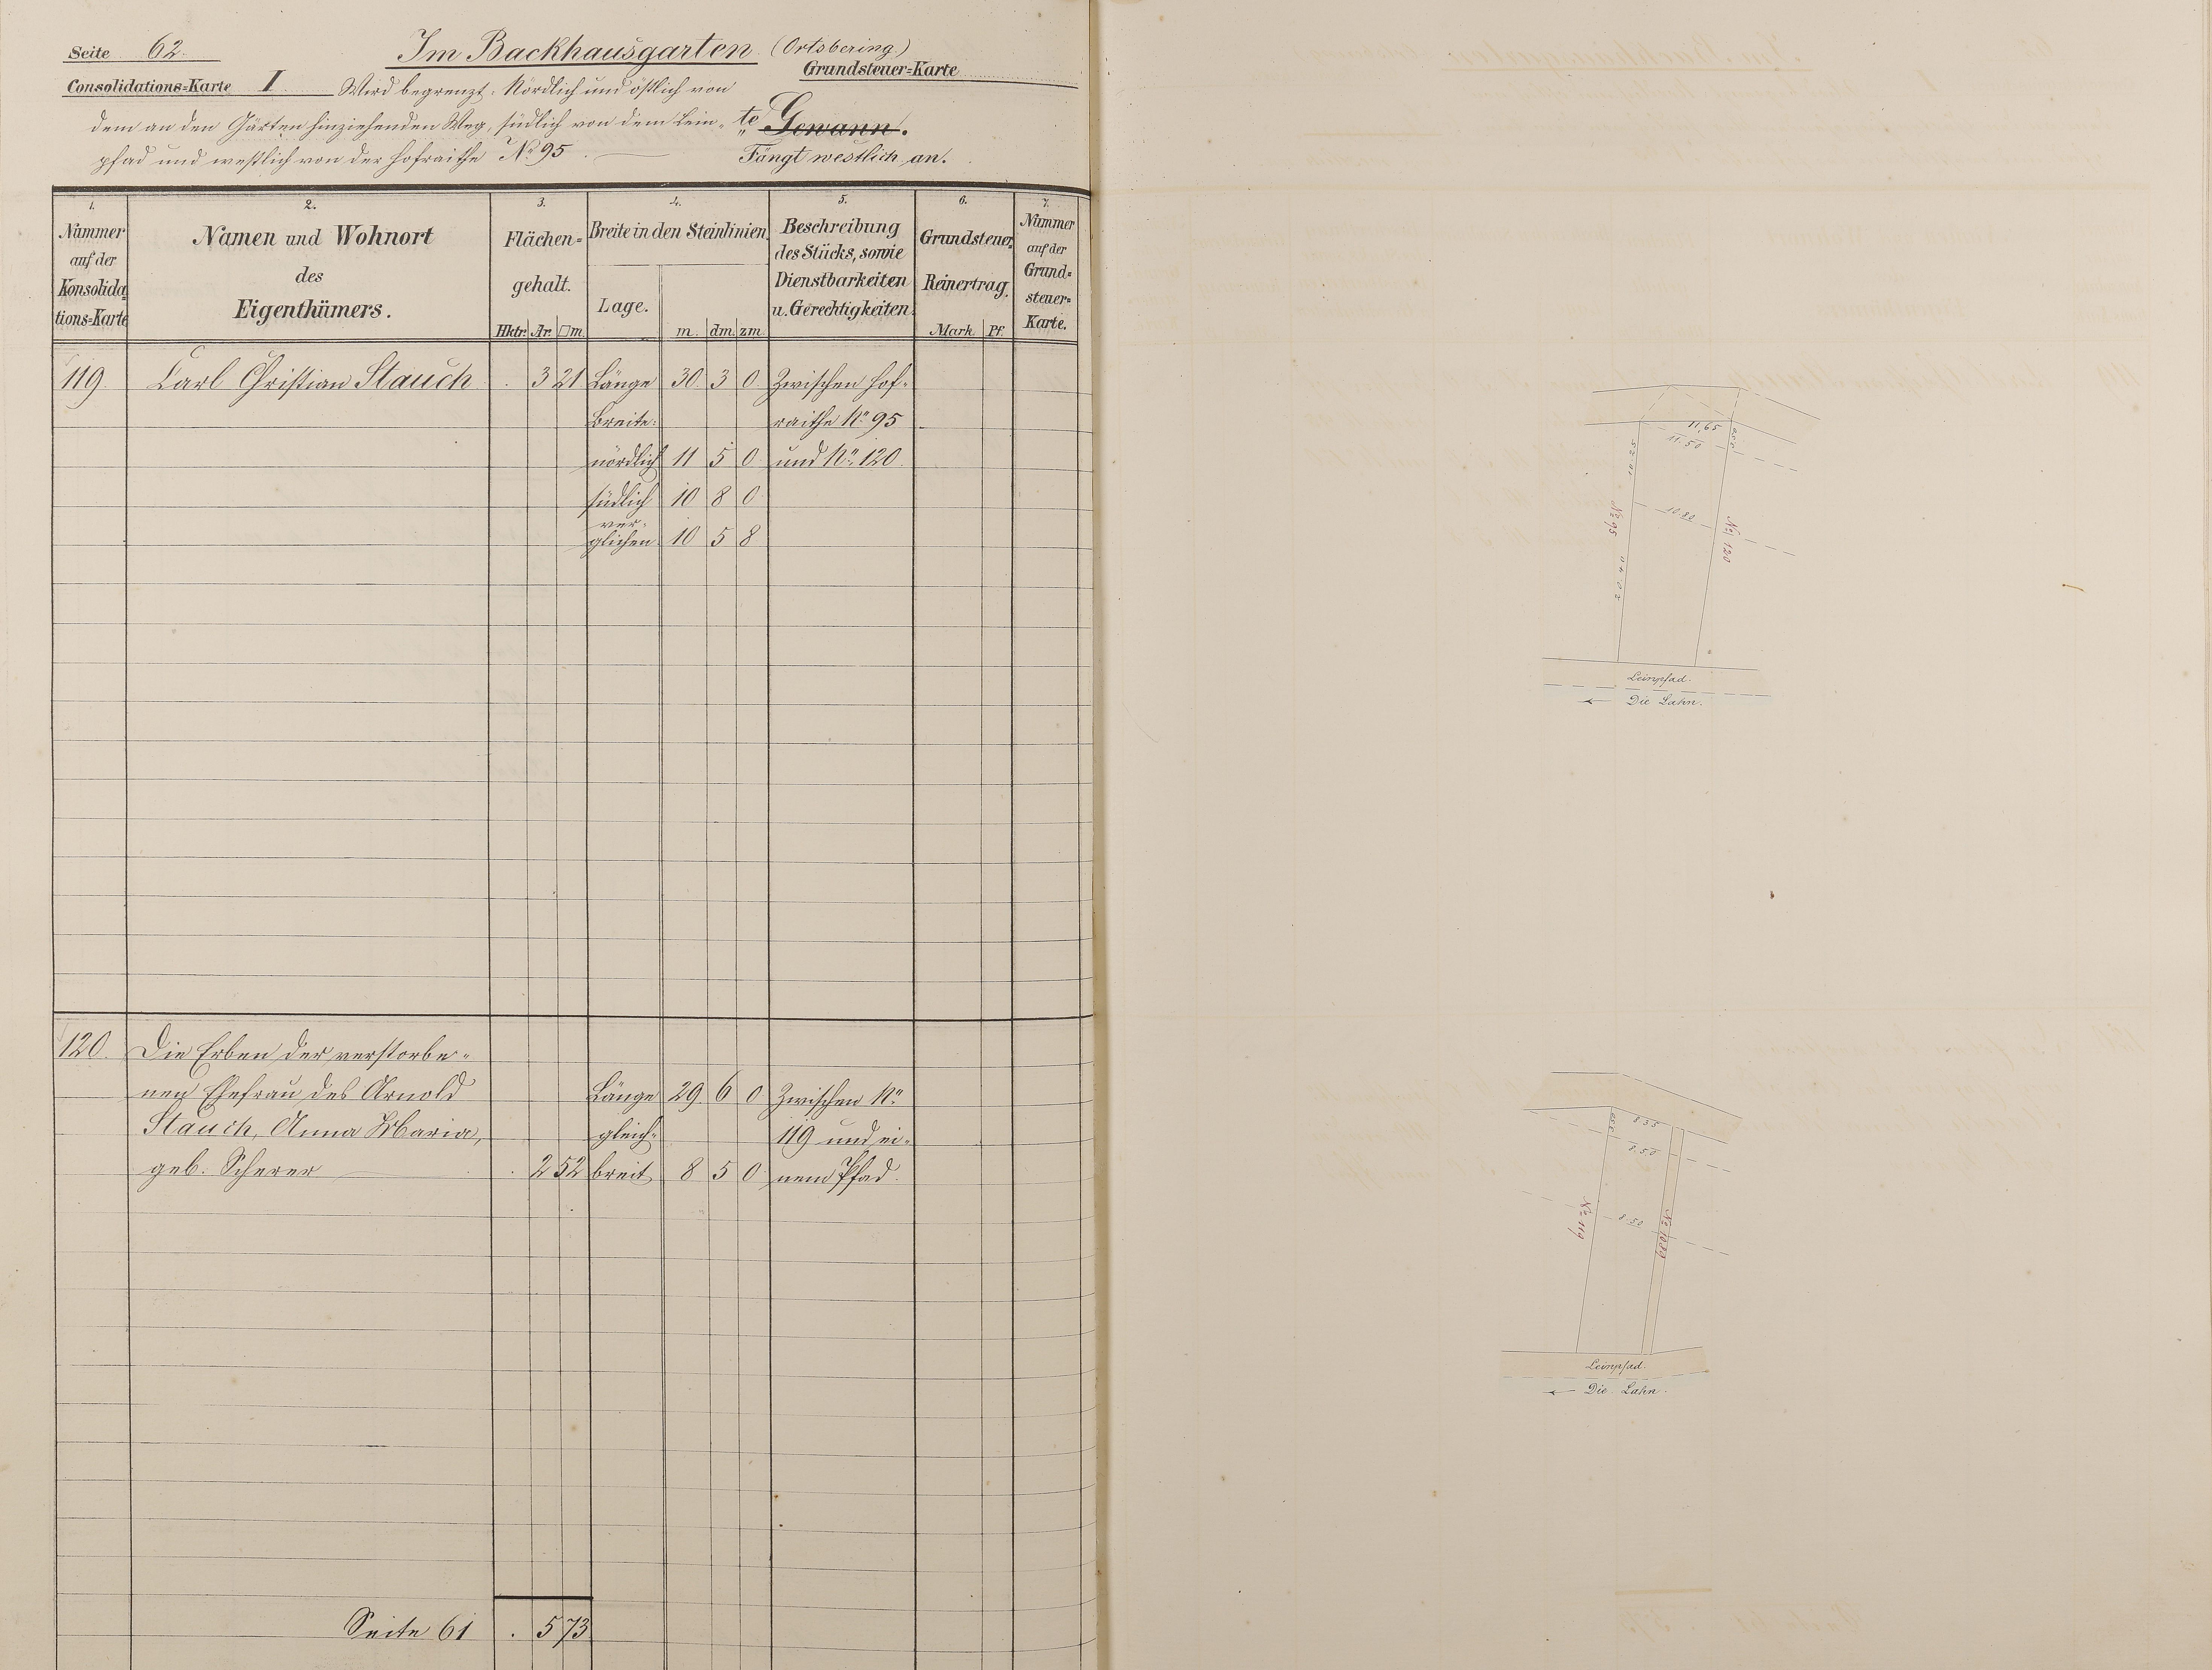 Seite 62.
Im Backhausgarten (Ortsbering)
Grundsteuer=Karte
Consolidations=Karte I. Wird begrenzt: Nördlich und östlich von
dem an den Gärten hinziehenden Weg, südlich von dem Lein-
te Gewann.
pfad und westlich von der Hofraithe No 95.
Fängt westlich an.
1. 2. 3. 4. 5. 6. 7.
Nummer auf der Konsolidations=Karte
Namen und Wohnort
des
Eigenthümers.
Flächen=
gehalt.
Hktr. Ar. □m.
Breite in den Steinlinien.
Lage.
m. dm. zm.
Beschreibung
des Stücks, sowie
Dienstbarkeiten
u. Gerechtigkeiten.
Grundsteuer
Reinertrag.
Mark. Pf.
Nummer
auf der
Grund=
steuer=
Karte.
119. Carl Christian Stauch . 3 21 Länge 30 3 0 Zwischen Hof-
Breite: raithe No 95
nördlich 11 5 0 und No 120.
südlich 10 8 0
ver-
glichen 10 5 8
120. Die Erben der verstorbe-
nen Ehefrau des Arnold Länge 29 6 0 Zwischen No
Stauch, Anna Maria, gleich- 119 und ei-
geb. Scherer . 2 52 breit 8 5 0 nem Pfad.
Seite 61 . 5 73
11,65
11.50
10.80
No 95
No 120
20.40
Leinpfad.
Die Lahn.
8.35
8.50
8.50
No 119
Leinpfad.
Die Lahn.